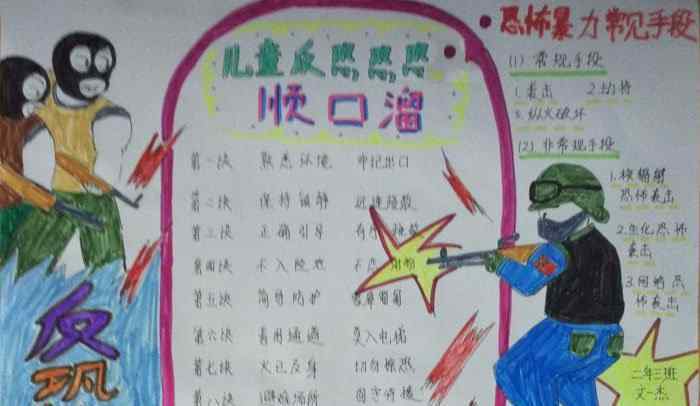 儿童反恐恐恐
顺口溜
第一决 熟悉环境 牢记出口
第二决 保持镇静 迅速疏散
第三决 正确引导 有序
第四决 不入险地 不
第五决 简易防护
第六决 善用通道 莫入电梯
第七决 火已及身 切勿惊恐
第八决 避难场所 固守待援
恐怖暴力常见手段
(1) 常规手段
1.袭击 2.劫持
3.纵火破坏
(2) 非常规手段
1.核辐射
恐怖袭击
2.生化恐怖
袭击
3.网络恐
怖袭击
反恐
二年三班
文一杰